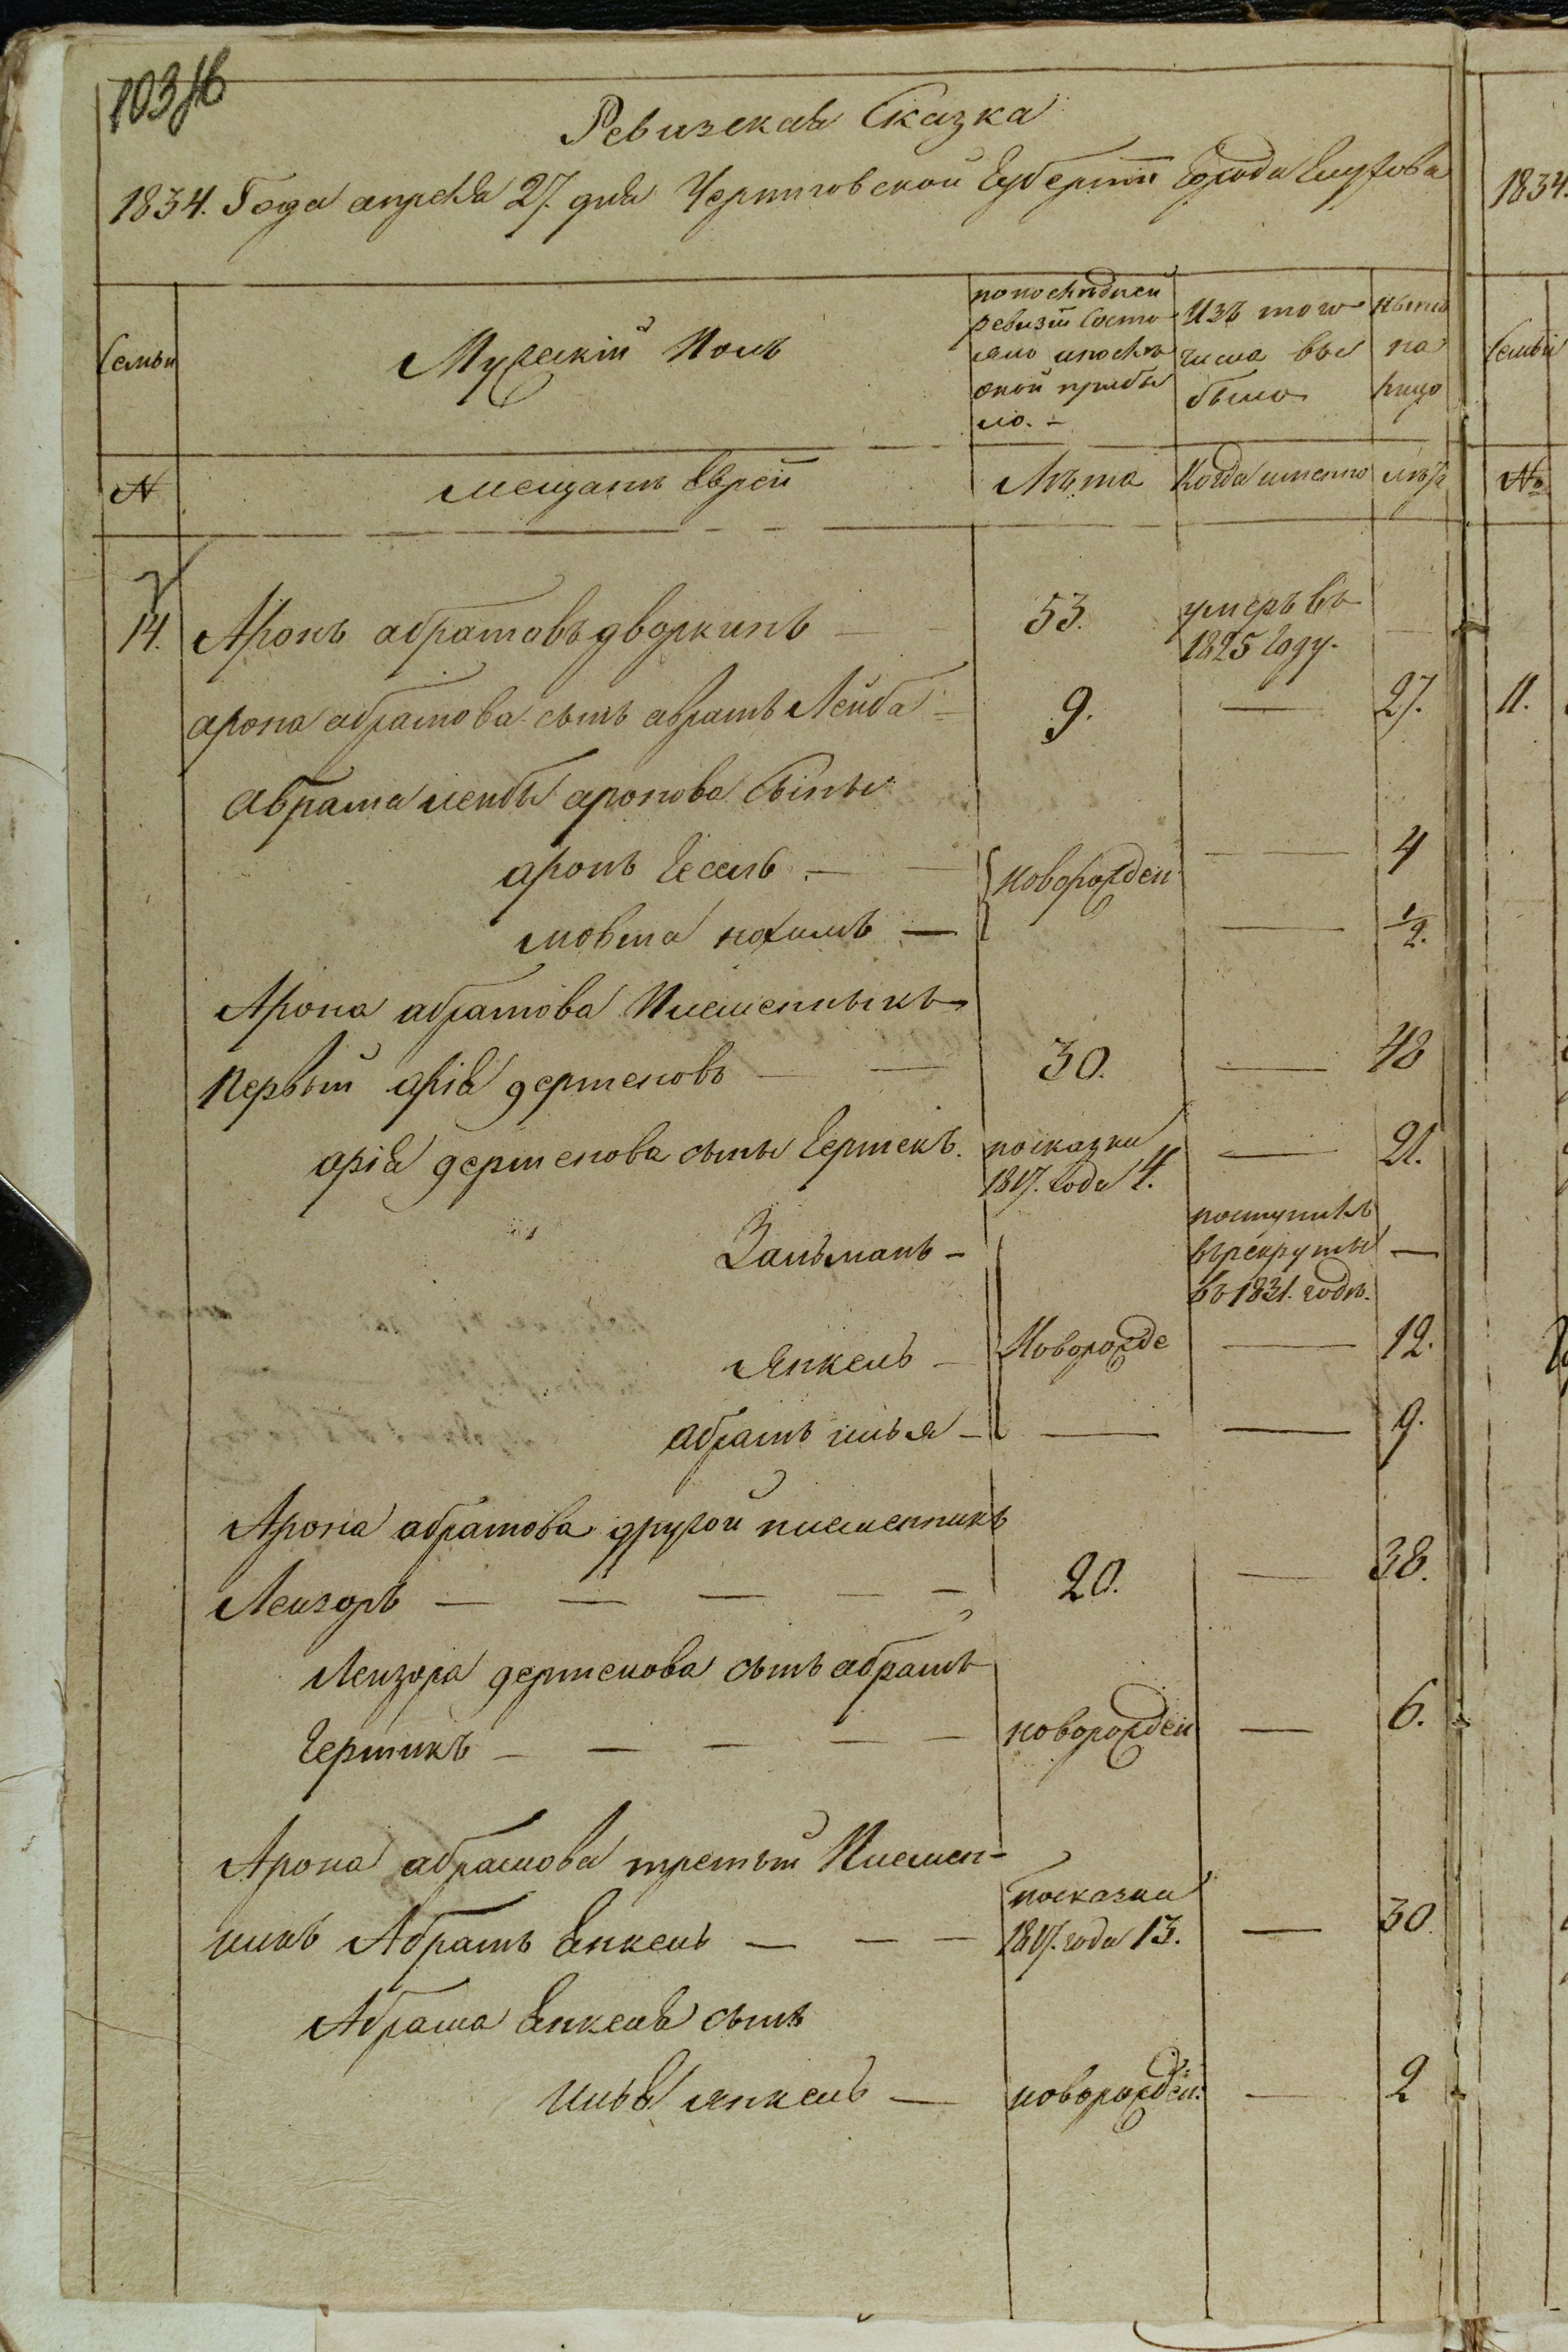 103 об
Ревизская Сказка
1834. Года апреля 27. дня Черниговской Губернии Города Глухова
1834.
Семьи
Мужескій Полъ
попоследней ревизіи состояло ипослѣ оной прибыло. -
Изъ того числа выбыло
Нынѣ на лицо
Семьи
№
мещанъ Евреи
Лѣта
Когда именно
лѣтъ
№
14. Аронъ абрамовъ дворкинъ — 53. умеръ въ 1825 году. —
арона абрамова сынъ абрамъ Лейба — 9. — 27.
11.
абрама лейбы аронова сыны
аронъ Гесель — новорожден — 4
мовша нохимъ — — 1/2.
Арона абрамова Племенникъ
Первый арія гермековъ — 30. — 48
арія гермекова сыны Гермекъ. посказки 1817. года 4. — 21.
Залманъ — поступилъ врекруты въ 1831. годѣ. —
Янкель — Новорожде — 12.
абрамъ илья — — — 9.
Арона абрамова другой племенникъ
Лейзоръ — — — — — 20. — 38.
Лейзора гермекова сынъ абрамъ
Гермикъ — — — — — новорожден — 6.
Арона абрамова третьи Племен-
никъ Абрамъ Енкель — — — посказки 1817. года 13. — 30
Абрама Енкеля сынъ
илья янкель — новорожден. — 2